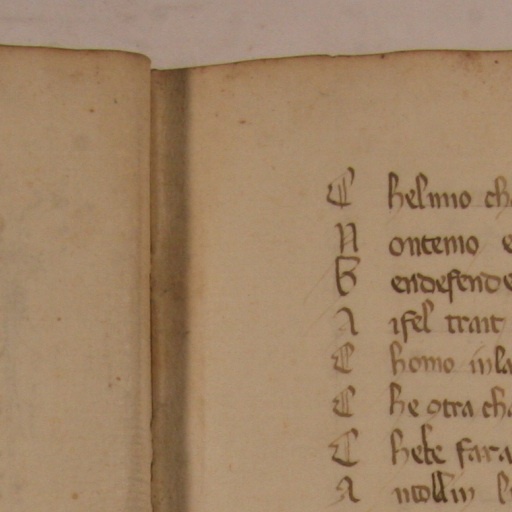 C helmio ch
N ontemo e
B endefende
A isel trait
C homo inla
C he otra cha
C hebe fara
A ncoll in